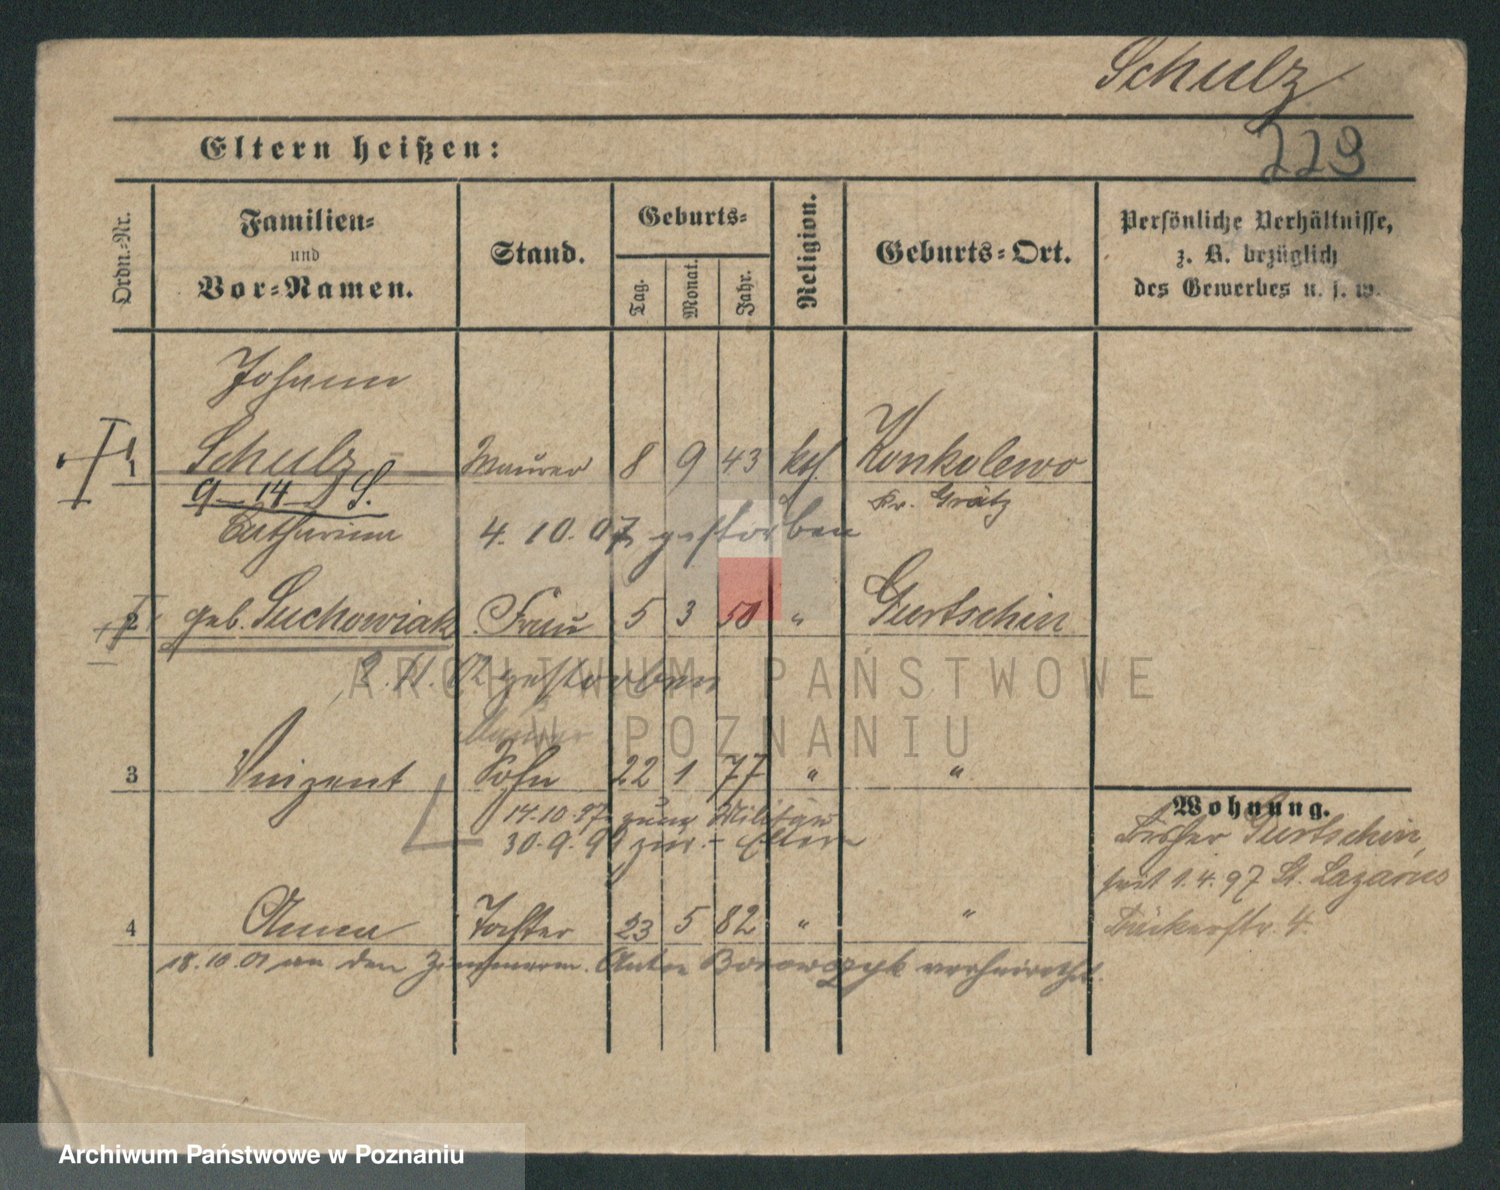 Schulz
Eltern heißen:
229
Ordn.-Nr.
Familien-
und
Vor-Namen.
Stand.
Geburts-
Tag.
Monat.
Jahr.
Religion.
Geburts-Ort.
Persönliche Verhältnisse,
z. B. bezüglich
des Gewerbes u. s. w.
Johann
1 Schulz Maurer 8 9 43 kath. Konkolewo
9 14 S. Kr. Grätz
Catharina 4. 10. 07 gestorben
2 geb. Suchowiak Frau 5 3 50 " Gurtschin
2. 11. 02 gestorben
Maurer
3 Vinzent Sohn 22 1 77 " "
14.10.97 zum Militär
30.9.99 zur. Eltern
4 Anna Tochter 23 5 82 " "
18.10.01 an den Zimmerm. Anton Borowczyk verheirathet.
Wohnung.
Früher Gurtschin,
seit 1.4.97 St. Lazarus
4.
ARCHIWUM PAŃSTWOWE
W POZNANIU
Archiwum Państwowe w Poznaniu